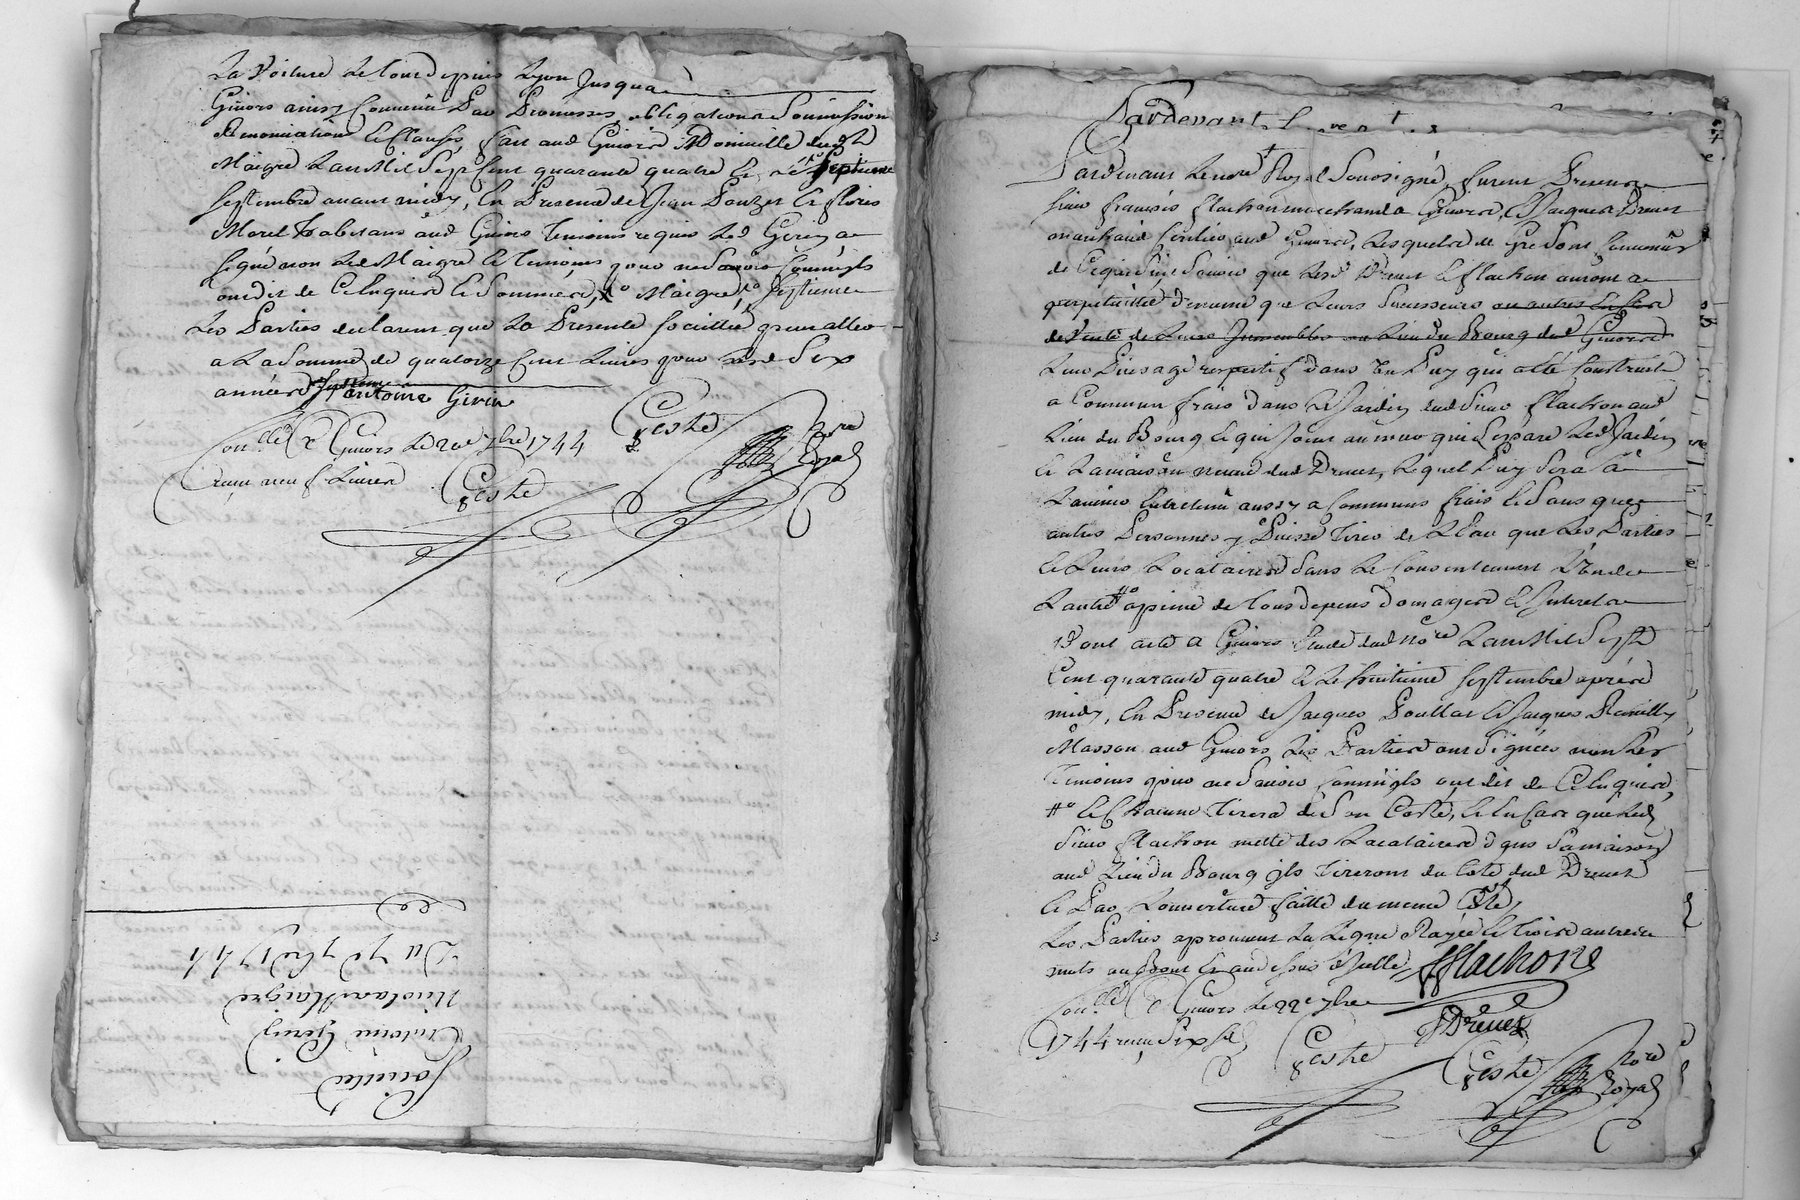 La Voiture le tout depuis Lyon Jusqua
Givors ainsy Convenu Par Promesses, obligations Soumissions
Renonciations & Clauses, fait aud Givors Domicille dud
Maigre Lan Mil Sept Cent quarante quatre & le septieme
Septembre avant midy, En Presence de Jean Pouzet & fleris
Morel habitans aud Givors Temoins requis Led Gerin a
signé non Led Maigre & Temoins pour ne Scavoir
ont dit de Ce Enquis & Sommés, Maigre, Septieme
Les Parties declarent que La Presente Societté pruvalloir
a La Somme de quatorze Cent Livres pour Lesd Six
années septieme
antoine Girin
Coste
Nore Royal
Conllé a Givors Le 20e 7bre 1744
reçu neuf Livres
Coste
Societté
Antoine Gerin
Nicolas Maigre
Du 7e 7bre 1744
Pardevant
Pardevant Le nore Royal Soussigné, furent Presents
sieur françois flachon marchand a Givors, & Jacques Drevet
marchand aud Givors, Lesquels de Gré Sont Convenus
de Ce qui Suit Scavoir que Lesd Drevet & flachon auront a
perpetuitté de meme que Leurs Successeurs ou autres
de Vente de Leurs Immeubles au Lieu du Bourg dud Givors
Leur Puisage respectif dans Un Puy qui a eté Construit
a Commun frais dans Le Jardin dud Sieur flachon aud
Lieu du Bourg & qui Joint au mur qui Separe Led Jardin
& La maison neuve dud Drevet, Lequel Puy Sera a
L'avenir Entretenu aussy a Communs frais & Sans que
autres Personnes y Puisse Tirer de L'Eau que Les Parties
& Leurs Locataires Sans Le Consentement L'un de
L'autre a peine de tous depens Domages & Interets
Dont acte a Givors Etude dud Nore Lan Mil Sept
Cent quarante quatre & Le huitieme Septembre aprés
midy, En Presence de Jacques Poullat & Jacques
Masson aud Givors, Les Parties ont Signées non Les
Temoins pour ne Scavoir ont dit de Ce Enquis,
& Chacune Tirera de Son Costé, & En Cas que Led
Sieur flachon mette des Locataires dans Sa maison
aud Lieu du Bourg ils Tireront du Coté dud Drevet
& Par L'ouverture faitte du meme Coté,
Les Parties aprouvent La Ligne Rayée & trois autres
mots au Bout & au dessus d'Icelle
fflachon
Conllé a Givors Le 22e 7bre
1744 reçu Six sols
JDrevet
Coste
Coste
Nore Royal